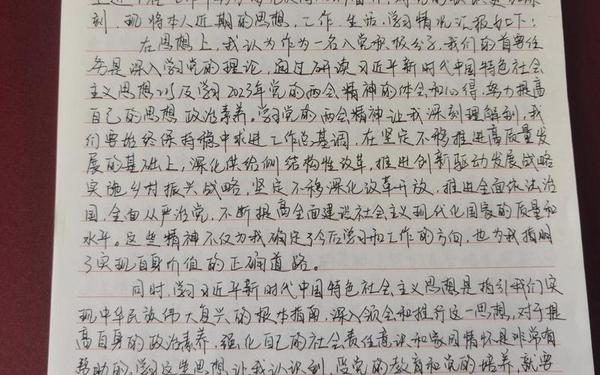 刻，现将本人近期的思想、工作、生活、学习情况汇报如下：
在思想上，我认为作为一名入党积极分子，我们的首要任
务是深入学习党的理论，通过研读习近平新时代中国特色社会
主义思想以及学习2023年党的两会精神的体会和心得，努力提高
自己的思想政治素养。学习党的两会精神让我深刻理解到，我
们要始终保持稳中求进工作总基调，在坚定不移推进高质量发
展的基础上，深化供给侧结构性改革，推进创新驱动发展战略
实施乡村振兴战略，坚定不移深化改革开放，推进全面依法治
国，全面从严治党，不断提高全面建设社会主义现代化国家的质量和
水平。这些精神不仅为我确定了今后学习和工作的方向，也为我指明
了实现自身价值的正确道路。
同时，学习习近平新时代中国特色社会主义思想是指引我们实
现中华民族伟大复兴的根本指南，深入领会和推行这一思想，对于提
高自身的政治素养，强化自己的社会责任意识和家国情怀是非常有
帮助的。学习这些思想让我认识到，受党的教育和党的培养，就要